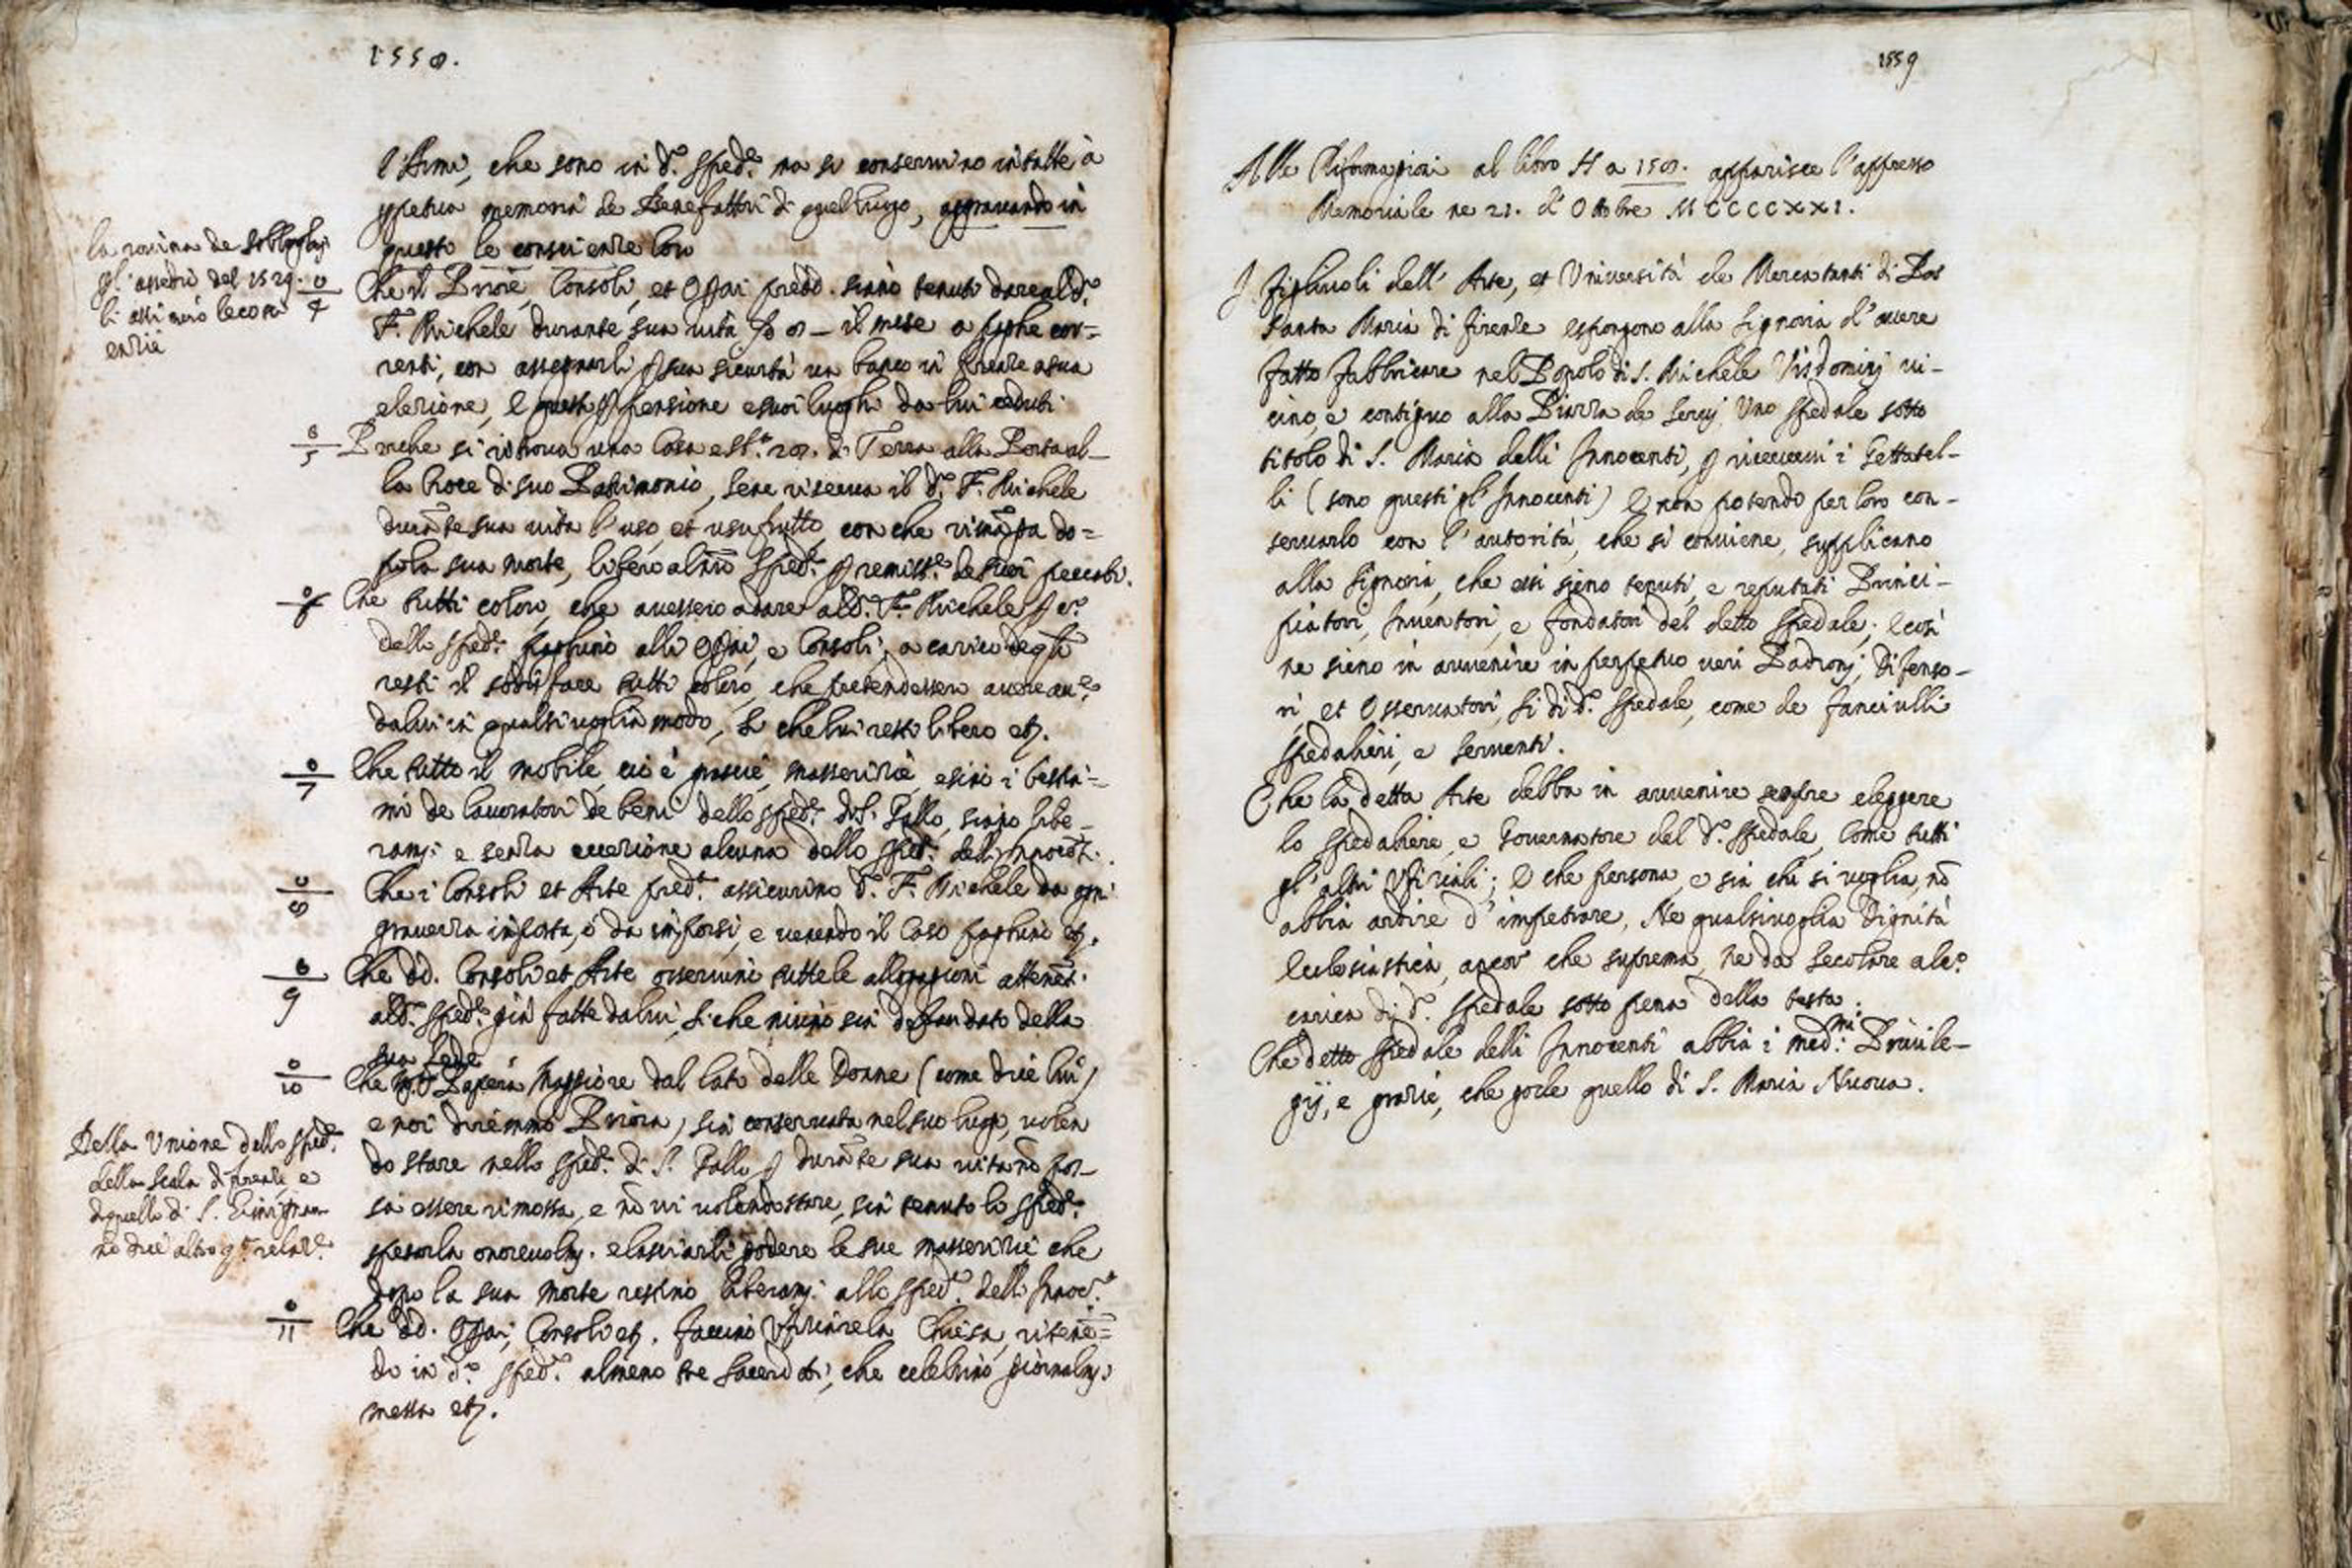 1558.
l'Armi, che sono in d.º Sped.e ma si conservino intatte à
ppetua memoria de Benefattori di quel luogo, aggravando in
questo le conscientie loro
la rovina de Sobborghi
p l'assedio del 1529.
li assicurò le con
entie
0/4 Che il Priore, Consoli, et Opai pred.i siano tenuti dare al d.º
F. Michele durante sua vita 8 — il mese a paghe cor=
renti, con assegnarli p sua sicurtà un banco in Firenze a sua
elezione, e questo p pensione e suoi luoghi da lui ceduti
0/5 Perche si ritrova una Casa e st.a di Terra alla Porta al-
la Croce di suo Patrimonio, sene riserva il d.º F. Michele
durãte sua vita l'uso, et usufrutto, con che rimãga do=
po la sua morte, libero al nrõ Sped.e p remiss.e de suoi peccati.
0/6 Che tutti coloro, che avessero a dare al d.º F. Michele p c.º
dello Sped.e paghino alli Opai, e Consoli, a carico degli
resti il sodisfare tutti coloro, che pretendessero avere av.e
da lui in qualsivoglia modo, Si che lui resti libero etc.
0/7 Che tutto il mobile, cioè grascie, masserizie, e sino i bestia=
mi de lavoratori de beni dello Sped.e di S. Gallo, siano libe-
ram.e e senza eccezione alcuna dello Sped.e delli Innocẽti.
0/8 Che i Consoli et Arte pred.a assicurino d.º F. Michele da ogni
gravezza imposta, ò da imporsi, e venendo il Caso paghino etc.
0/9 Che dd. Consoli et Arte osservino tutte le allogagioni attenẽti
al d.º Sped.e già fatte da lui, Si che niuno sia defraudato della
sua fede
0/10 Che Zapera Maggiore dal lato delle Donne (come dice lui)
e noi diremmo Priora, sia conservata nel suo luogo, volen
do stare nello Sped.e di S. Gallo p durãte sua vita nõ pos-
sa essere rimossa, e nõ vi volendo stare, sia tenuto lo Sped.e
spesarla onorevolm. e lasciarli godere le sue masserizie che
dopo la sua morte restino liberam. allo Sped.e delli Innoc.ti
Della Unione dello Sped.e
della Scala di Firenze, e
di quello di S. Gimigna
no dice altro q.ta relaz.e
0/11 Che dd. Opai, Consoli etc. faccino Ufiziare la Chiesa, ritenẽ=
do in d.º Sped.e almeno tre Sacerdoti, che celebrino giornalm.
messa etc.
1559
Alle Riformagioni al libro H a 158. apparisce l'appresso
Memoriale ne 21. d'Ottobre MCCCCXXI.
I figlivoli dell'Arte, et Università de Mercatanti di Por
Santa Maria di Firenze espongono alla Signoria d'avere
fatto fabbricare nel Popolo di S. Michele Visdominj vi-
cino, e contiguo alla Piazza de Servj Uno Spedale sotto
titolo di S. Maria delli Innocenti, p ricevervi i Gettatel-
li (sono questi gl'Innocenti) e non potendo per loro con-
servarlo con l'autorità, che si conviene, supplicano
alla Signoria, che essi sieno tenuti, e reputati Princi-
piatori, Inventori, e fondatori del detto Spedale; e così
ne sieno in avvenire in perpetuo veri Padronj, Difenso-
ri, et Osservatori, Si di d.º Spedale, come de fanciulli
Spedalieri, e Serventi.
Che la detta Arte debba in avvenire sempre eleggere
lo Spedaliere, e Governatore del d.º Spedale, Come tutti
gl'altri Ufiziali; e che persona, e sia chi si voglia, nõ
abbia ardire d'impetrare, Ne qualsivoglia Dignità
Ecclesiastica, ancor che suprema, ne da Secolare alc.ª
carica di d.º Spedale sotto pena della testa.
Che detto Spedale delli Innocenti abbia i med.mi Privile-
gij, e grazie, che gode quello di S. Maria Nuova.